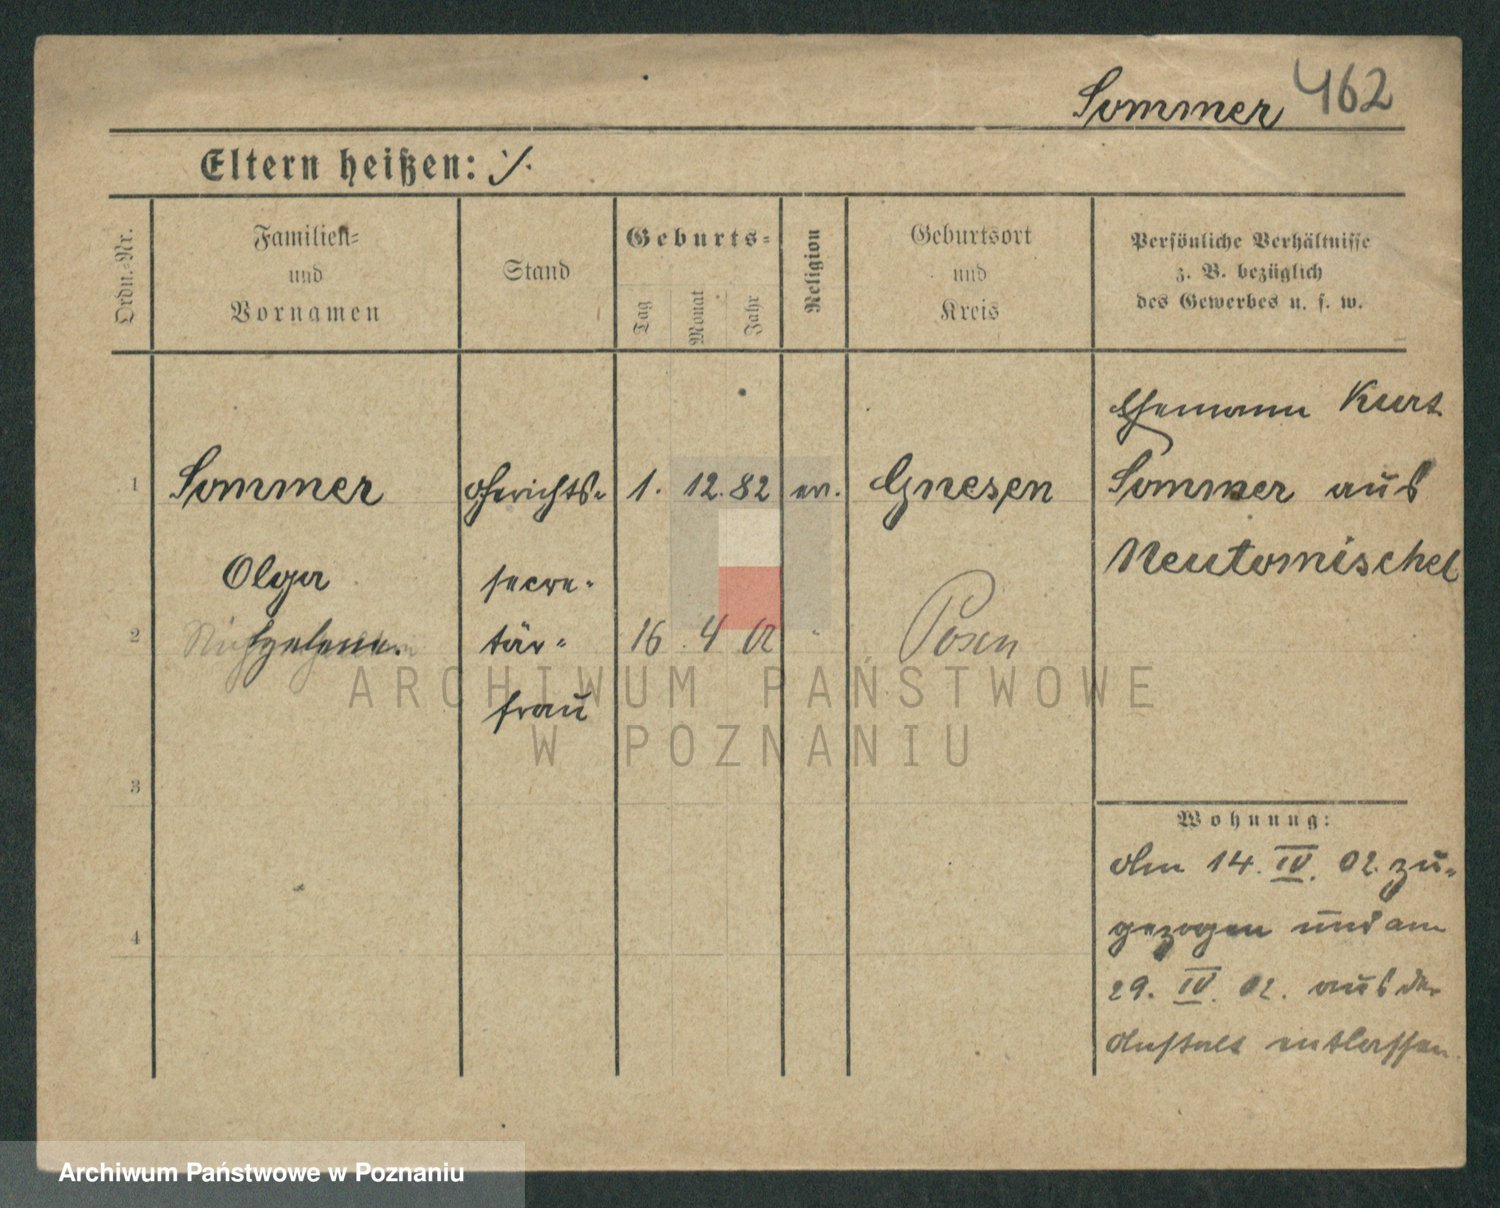 Sommer 462
Eltern heißen: ·/.
Ordn.-Nr.
Familien-
und
Vornamen
Stand
Geburts-
Tag
Monat
Jahr
Religion
Geburtsort
und
Kreis
Persönliche Verhältnisse
z. B. bezüglich
des Gewerbes u. s. w.
Ehemann Kurt
1 Sommer Gerichts- 1. 12. 82 ev. Gnesen Sommer aus
Neutomischel
Olga secre-
2 tär- 16 4 02 " Posen
frau
3
4
Wohnung:
Am 14. IV. 02. zu-
gezogen und am
29. IV. 02. aus der
Anstalt entlassen.
ARCHIWUM PAŃSTWOWE
W POZNANIU
Archiwum Państwowe w Poznaniu